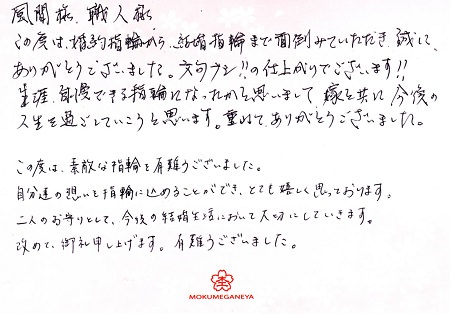 風間様、職人様
この度は、婚約指輪から、結婚指輪まで面倒みていただき、誠に、
ありがとうございました。文句ナシ!!の仕上がりでございます!!
生涯、自慢できる指輪になったかと思いまして 嫁と共に 今後の
人生を過ごしていこうと思います。重ねて、ありがとうございました。
この度は、素敵な指輪を有難うございました。
自分達の想いを指輪に込めることができ、とても嬉しく思っております。
二人のお守りとして、今後の結婚生活において大切にしていきます。
改めて、御礼申し上げます。有難うございました。
MOKUMEGANEYA